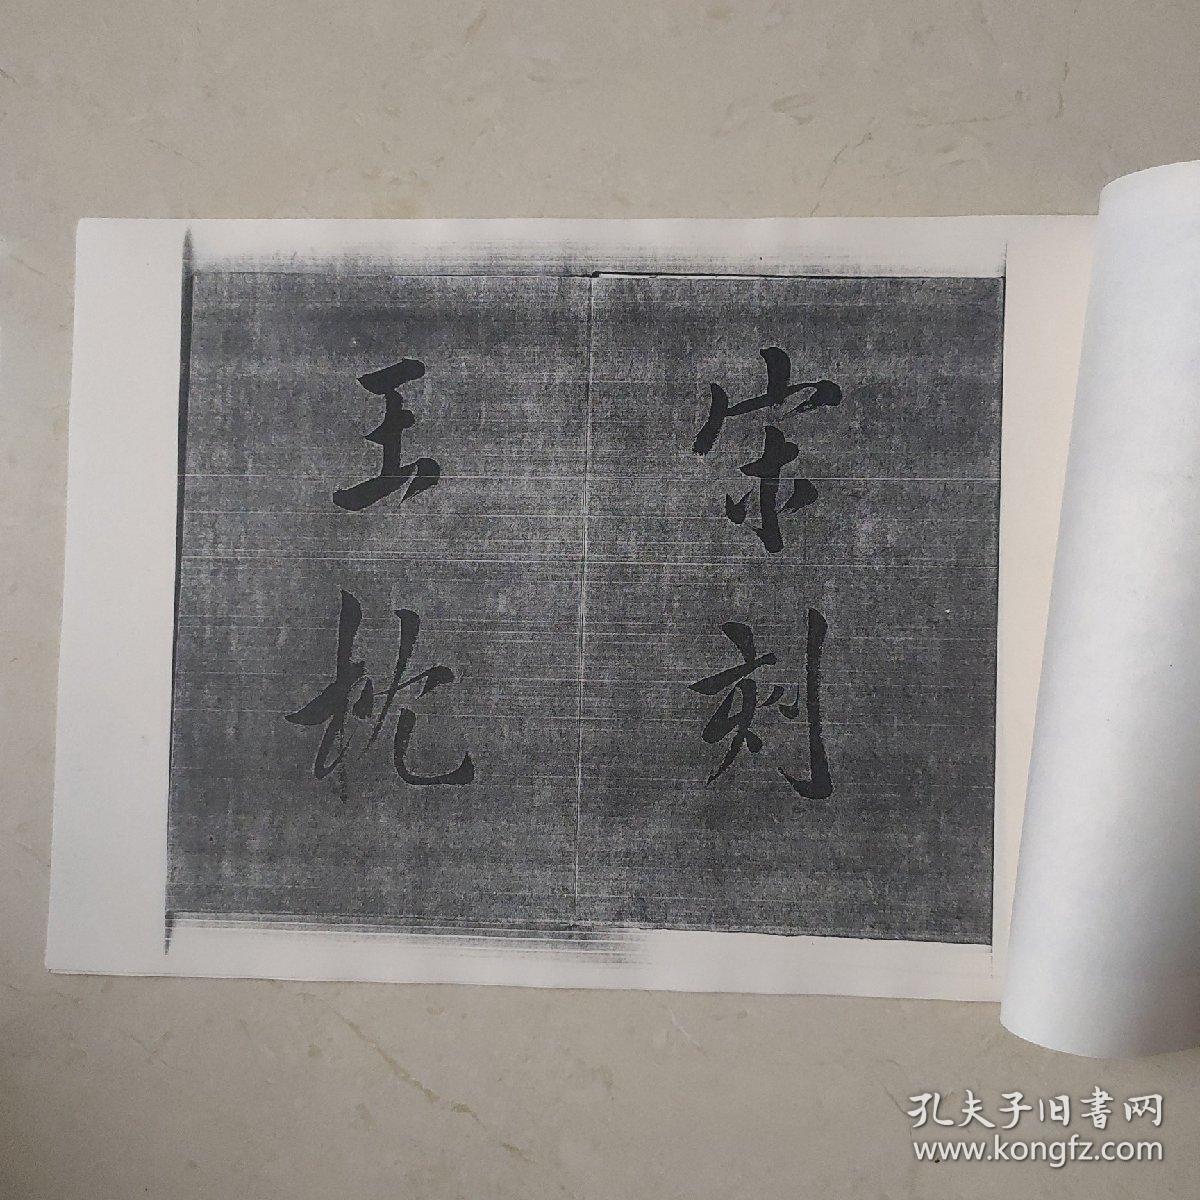 宋刻
玉枕
孔夫子旧書网
www.kongfz.com